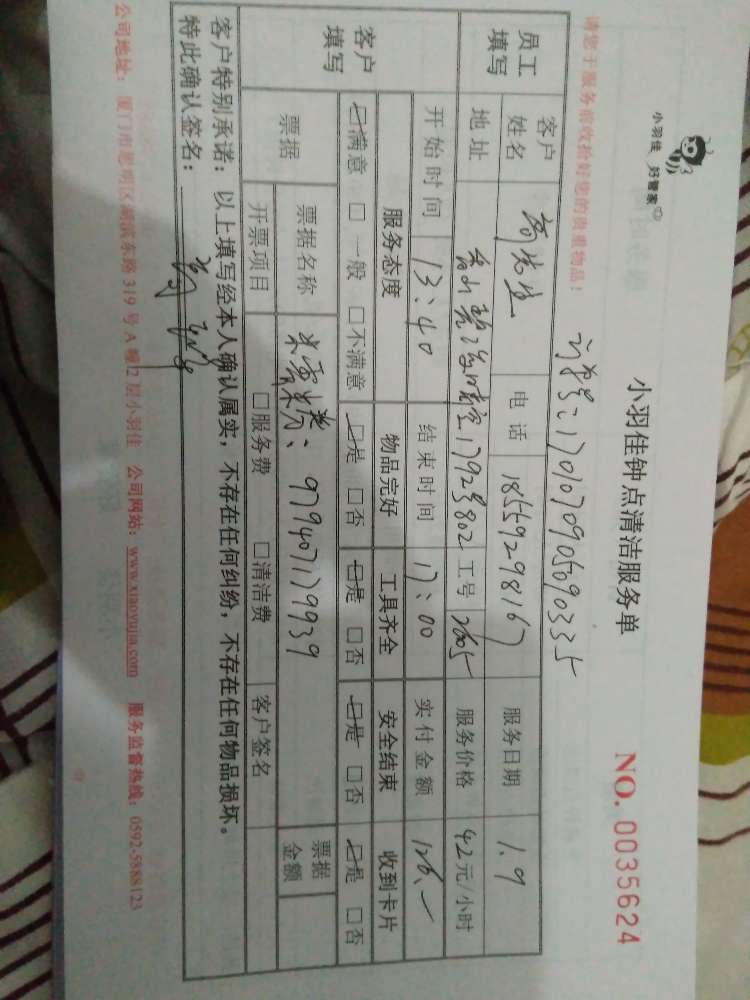 小羽佳 好管家
小羽佳钟点清洁服务单
NO. 0035624
请您于服务前收拾好您的贵重物品！
订单号：1701070905090335
员工填写 客户姓名 先生 电话 18559298167 服务日期 1.9
地址 1792号802 工号 2605 服务价格 42元/小时
开始时间 13:40 结束时间 17:00 实付金额 126.-
客户填写 服务态度 物品完好 工具齐全 安全结束 收到卡片
☑满意 □一般 □不满意 ☑是 □否 ☑是 □否 ☑是 □否 ☑是 □否
票据 票据名称 米雪券：979407179939 票据金额
开票项目 □服务费 □清洁费 客户签名
客户特别承诺：以上填写经本人确认属实，不存在任何纠纷，不存在任何物品损坏。
特此确认签名：
公司地址：厦门市思明区湖滨东路319号A幢12层小羽佳 公司网站：www.xiaoyujia.com 服务监督热线：0592-5888123